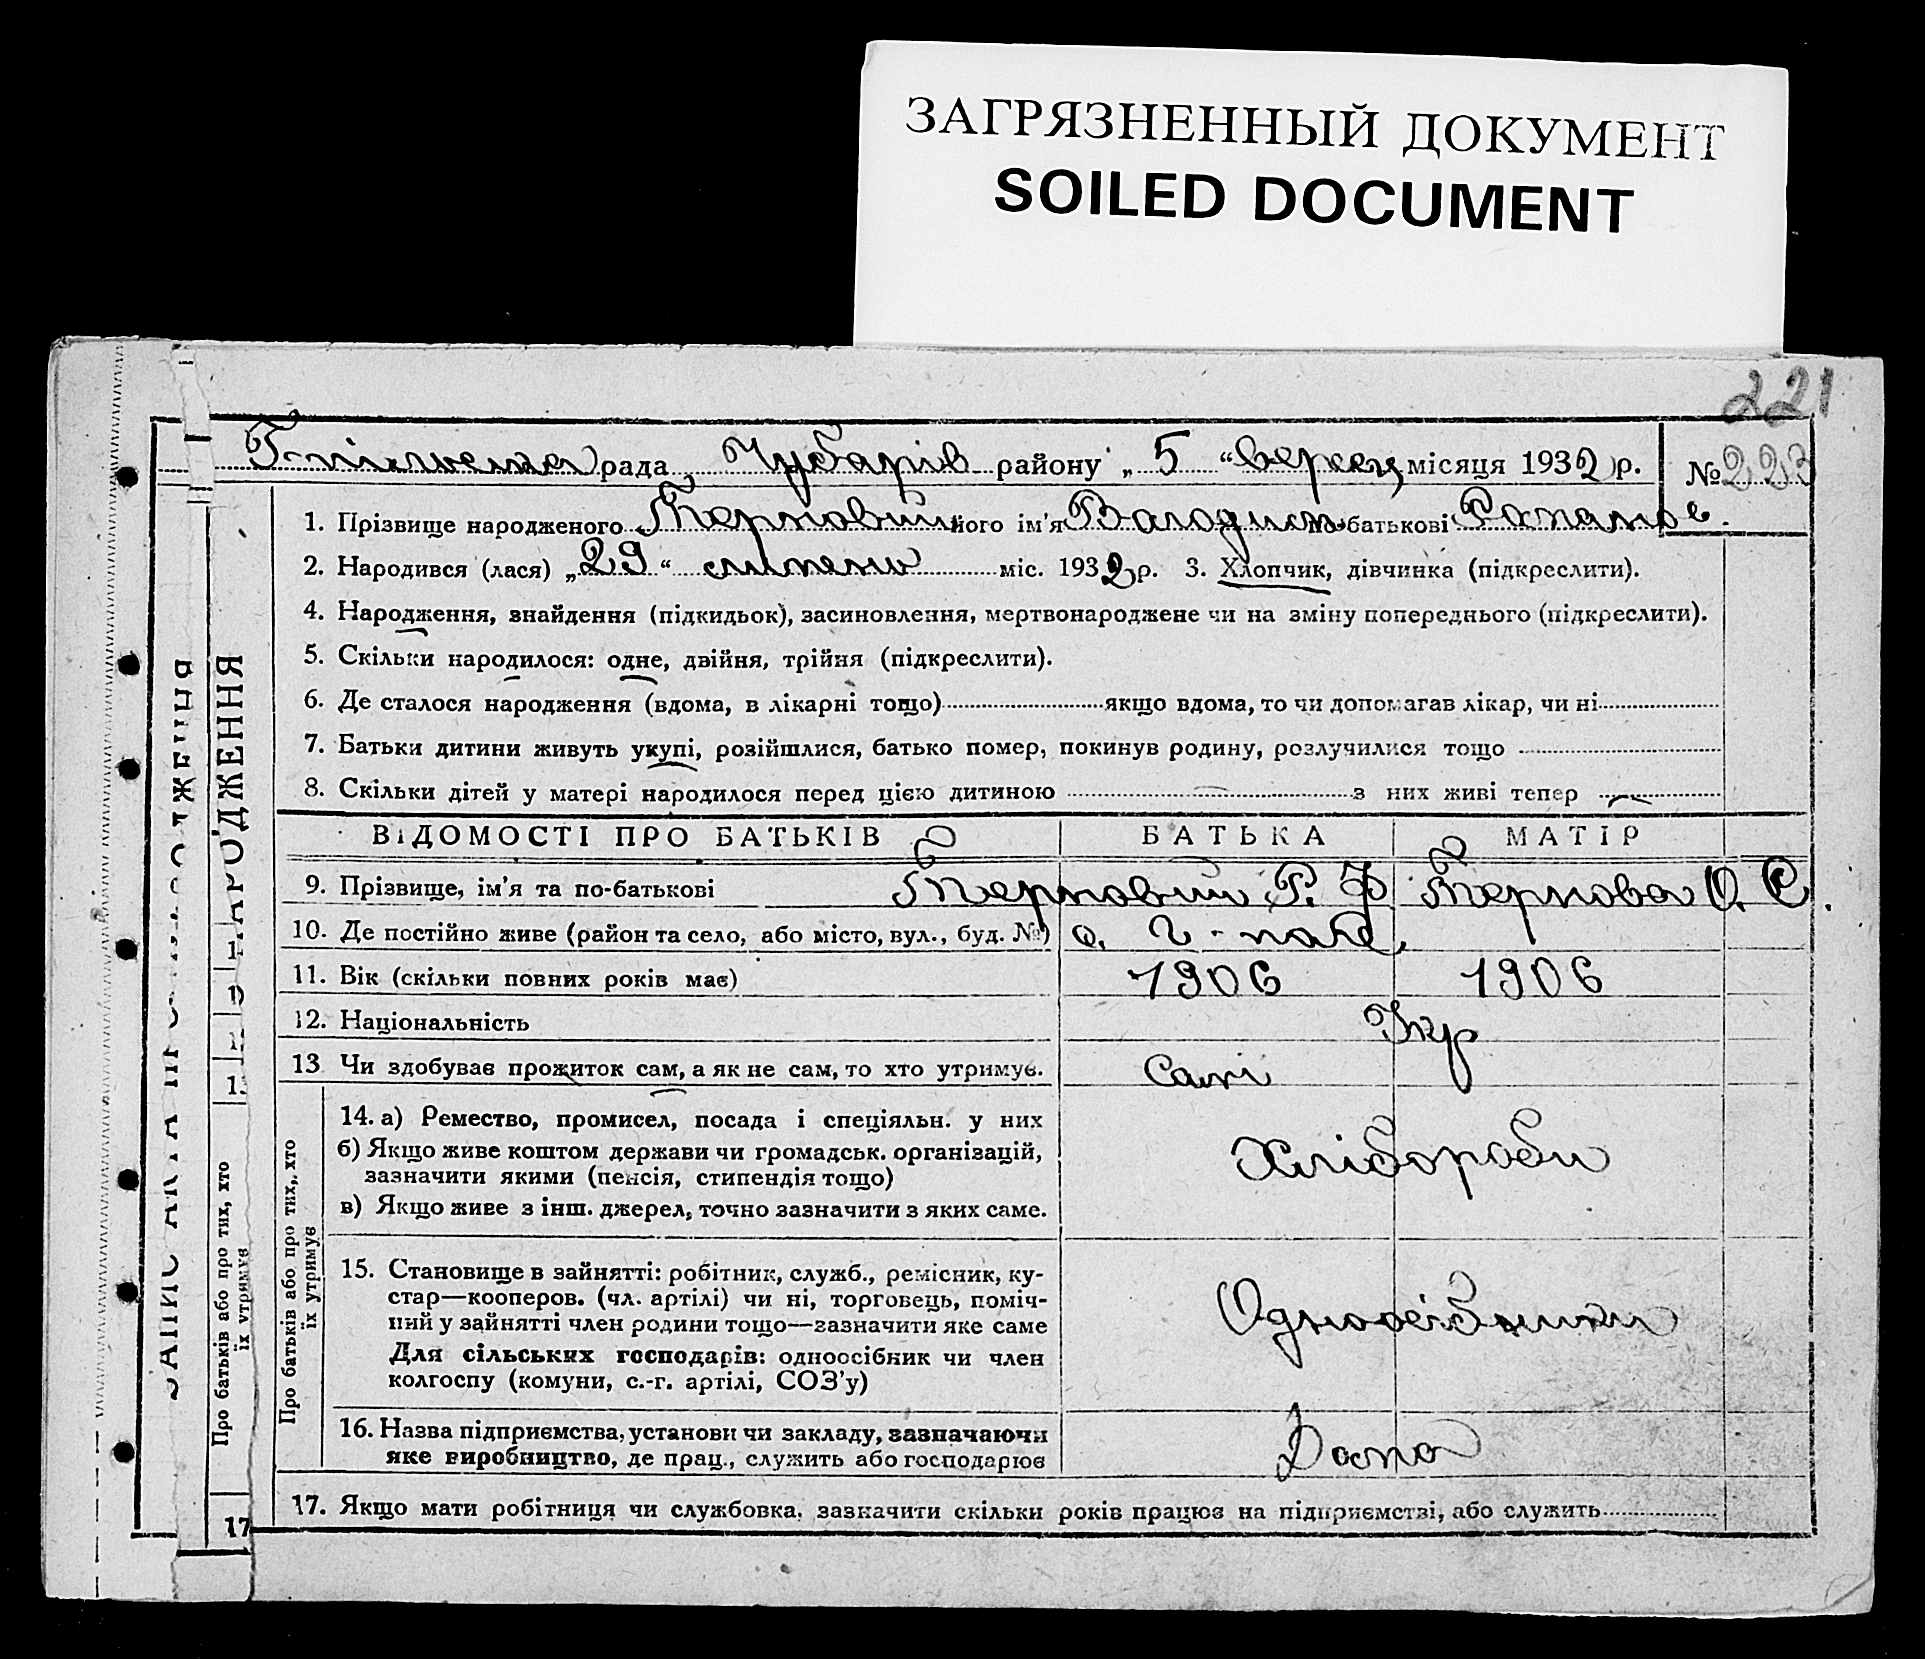 ЗАГРЯЗНЕННЫЙ ДОКУМЕНТ
SOILED DOCUMENT
221
рада Чубарів району „5“ версец місяця 1932 р. № 223
1. Прізвище народженого Терновий його ім'я Володим по-батькові
2. Народився (лася) „29“ липень міс. 1932 р. 3. Хлопчик, дівчинка (підкреслити).
4. Народження, знайдення (підкидьок), засиновлення, мертвонароджене чи на зміну попереднього (підкреслити).
5. Скільки народилося: одне, двійня, трійня (підкреслити).
6. Де сталося народження (вдома, в лікарні тощо) якщо вдома, то чи допомагав лікар, чи ні
7. Батьки дитини живуть укупі, розійшлися, батько помер, покинув родину, розлучилися тощо
8. Скільки дітей у матері народилося перед цією дитиною — з них живі тепер —
ВІДОМОСТІ ПРО БАТЬКІВ БАТЬКА МАТІР
9. Прізвище, ім'я та по-батькові Терновий Р. Ф Тернова О. С.
10. Де постійно живе (район та село, або місто, вул., буд. №)
11. Вік (скільки повних років має) 1906 1906
12. Національність Укр
13 Чи здобував прожиток сам, а як не сам, то хто утримує. Самі
Про батьків або про тих, хто їх утримує
14. а) Ремество, промисел, посада і спеціяльн. у них
б) Якщо живе коштом держави чи громадськ. організацій,
зазначити якими (пенсія, стипендія тощо)
в) Якщо живе з інш. джерел, точно зазначити з яких саме.
Хлібороби
15. Становище в зайнятті: робітник, служб., ремісник, ку-
стар—кооперов. (чл. артілі) чи ні, торговець, поміч-
ний у зайнятті член родини тощо—зазначити яке саме
Для сільських господарів: одноосібник чи член
колгоспу (комуни, с.-г. артілі, СОЗ'у)
Одноосібники
16. Назва підприємства, установи чи закладу, зазначаючи
яке виробництво, де прац., служить або господарює
Дома
17. Якщо мати робітниця чи службовка, зазначити скільки років працює на підприємстві, або служить
НАРОДЖЕННЯ
Про батьків або про тих, хто
їх утримує
17